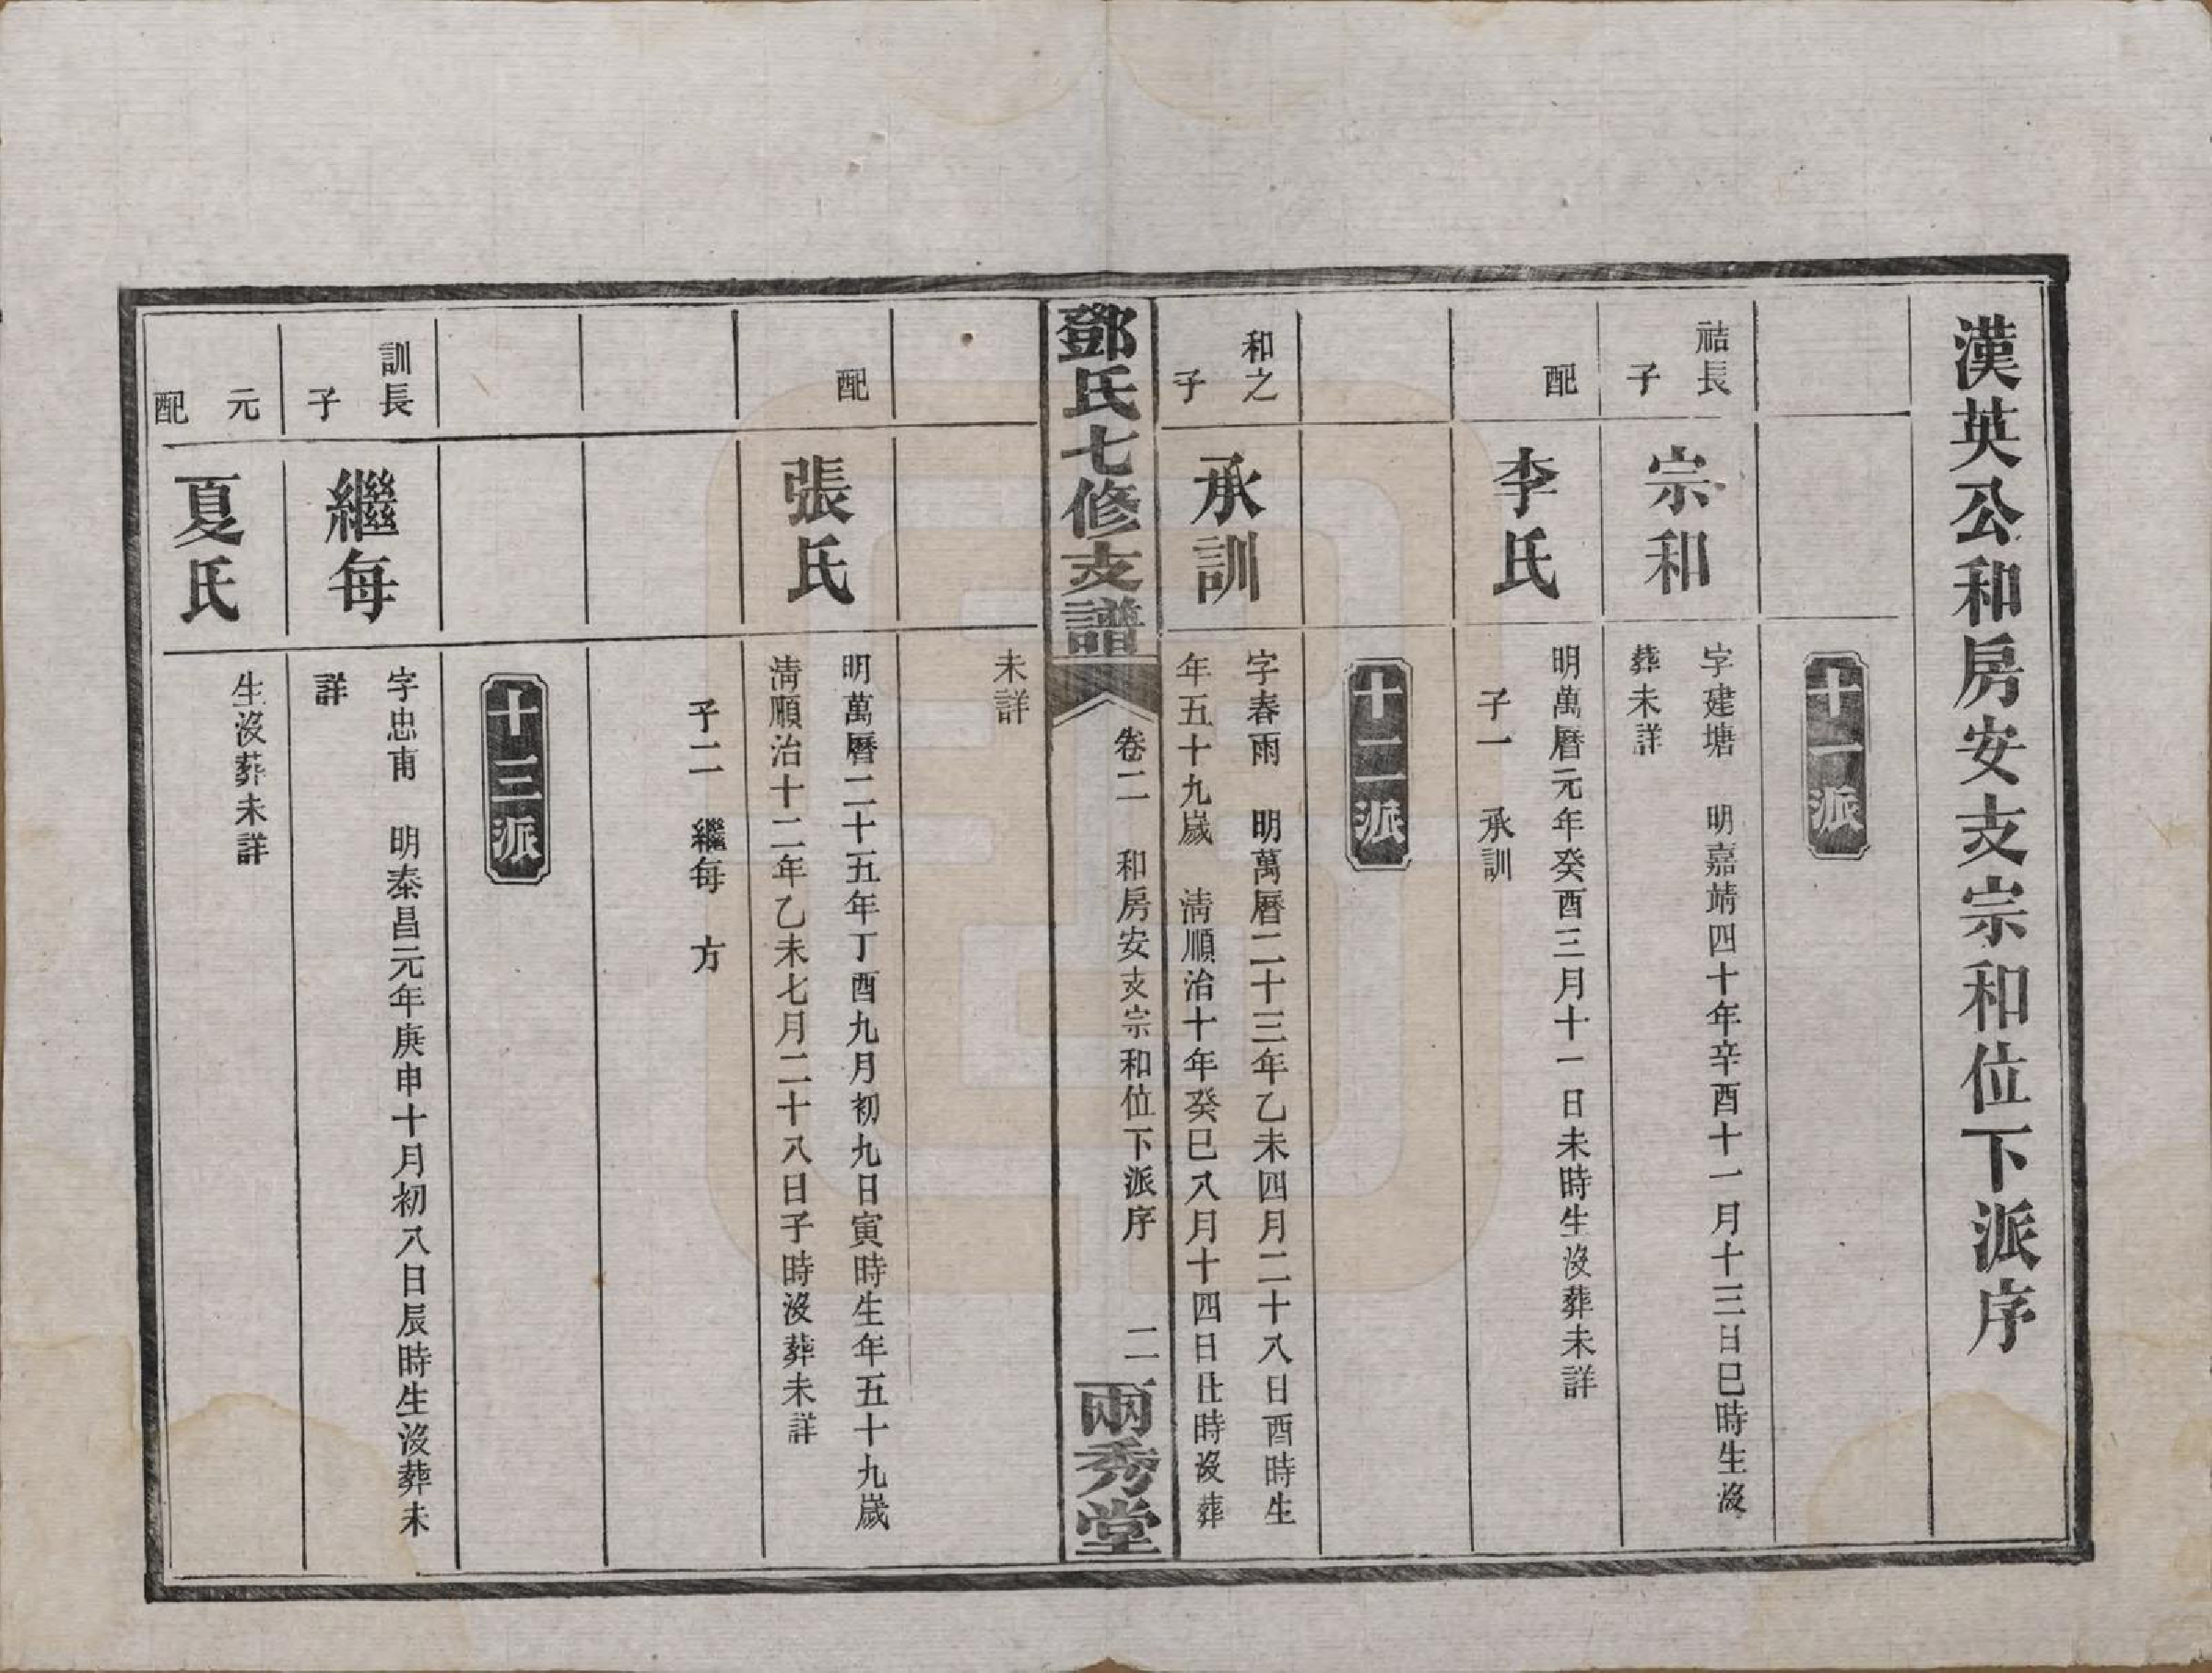 漢英公和房安支宗和位下派序
十一派
祜長
子
宗和
字建塘　明嘉靖四十年辛酉十一月十三日巳時生沒
葬未詳
配
李氏
明萬曆元年癸酉三月十一日未時生沒葬未詳
子一　承訓
十二派
和之
子
承訓
字春雨　明萬曆二十三年乙未四月二十八日酉時生
年五十九歲　清順治十年癸巳八月十四日丑時沒葬
鄧氏七修支譜
卷二　和房安支宗和位下派序
二
兩秀堂
未詳
配
張氏
明萬曆二十五年丁酉九月初九日寅時生年五十九歲
清順治十二年乙未七月二十八日子時沒葬未詳
子二　繼每　方
十三派
訓長
子
繼每
字忠甫　明泰昌元年庚申十月初八日辰時生沒葬未
詳
元
配
夏氏
生沒葬未詳